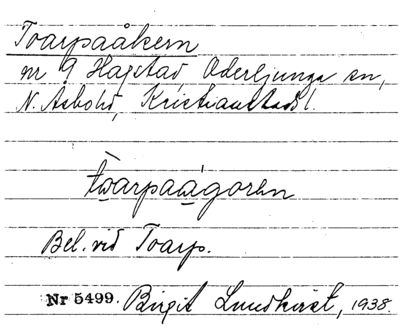 Toarpaåkern
nr 9 Hagstad, Oderljunga sn,
N. Åsbohd, Kristianstads l.
toarpaågoren
Bel. vid Toarp.
Nr 5499. Birgit Lundkvist, 1938.